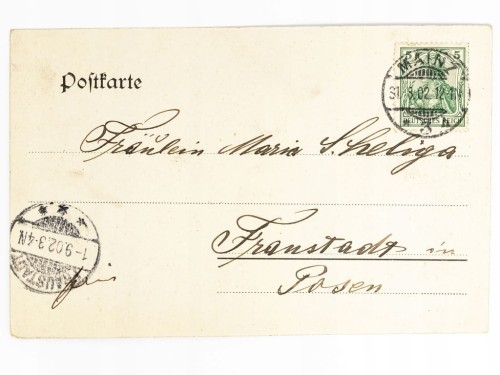 Postkarte
5 5
DEUTSCHES REICH
MAINZ
31.8.02.12-1N
Fräulein Maria Scheliga
Fraustadt in
Posen
frei
FRAUSTADT
1-9.02.3-4N